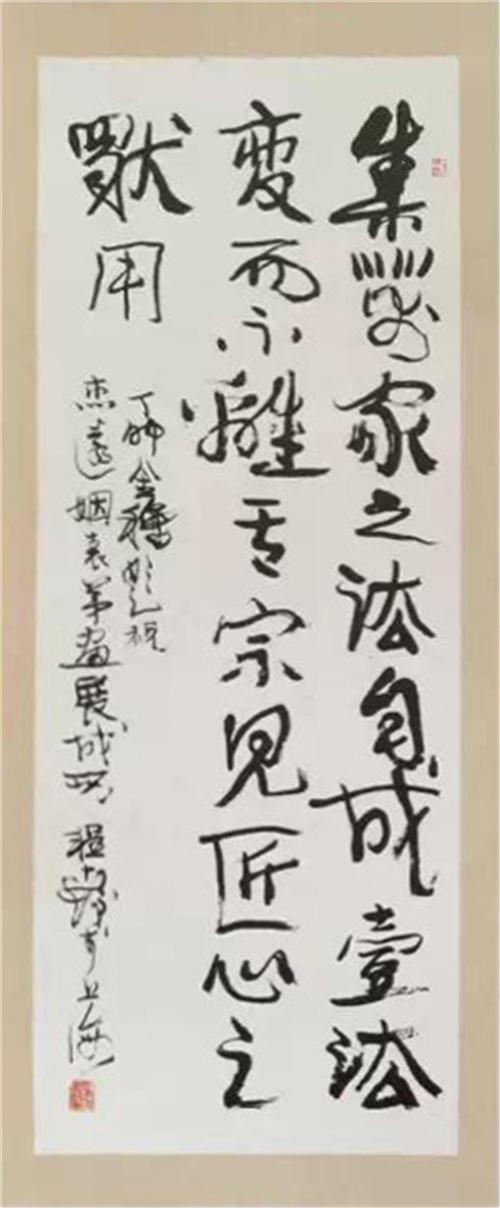 集萬家之法自成壹法
變而不離其宗見匠心之
獨用
丁酉金穐
杰遠姻表弟畫展成功 程于上海